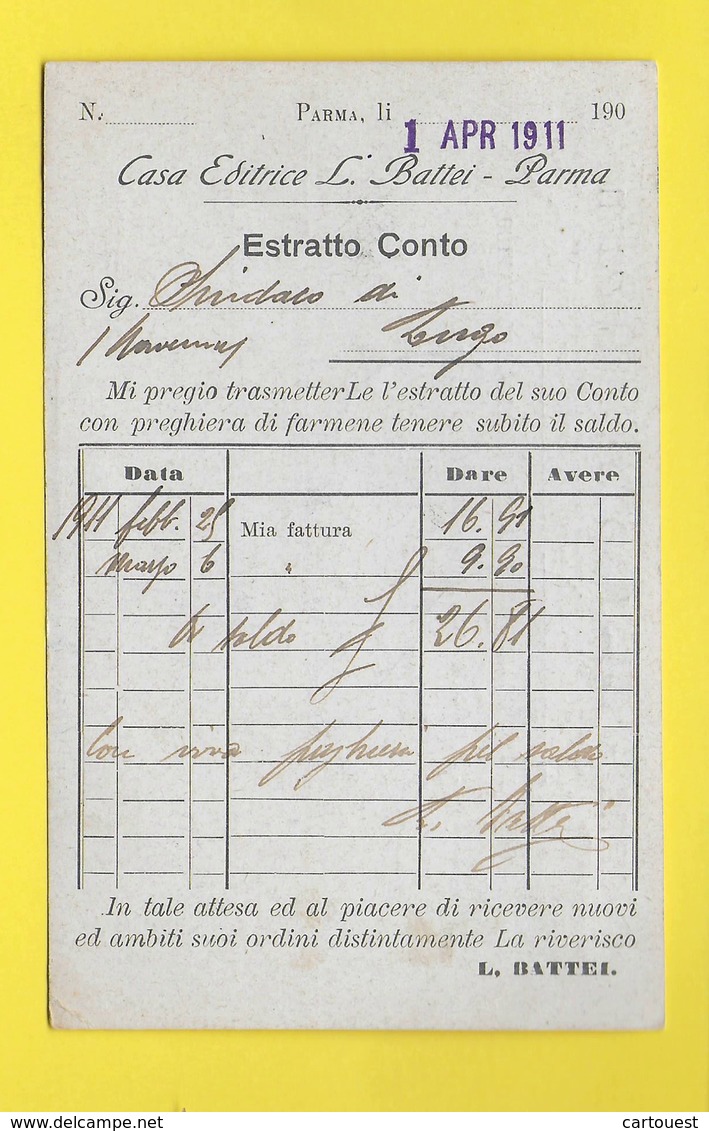 N. PARMA, li 190
1 APR 1911
Casa Editrice L. Battei - Parma
Estratto Conto
Sig. Sindaco di
Lugo
Mi pregio trasmetterLe l'estratto del suo Conto
con preghiera di farmene tenere subito il saldo.
Data Dare Avere
1911 febb. 25 Mia fattura 16.91
Marzo 6 " 9.90
saldo 26.81
Con viva preghiera pel saldo
L. Battei
In tale attesa ed al piacere di ricevere nuovi
ed ambiti suoi ordini distintamente La riverisco
L. BATTEI.
cartouest